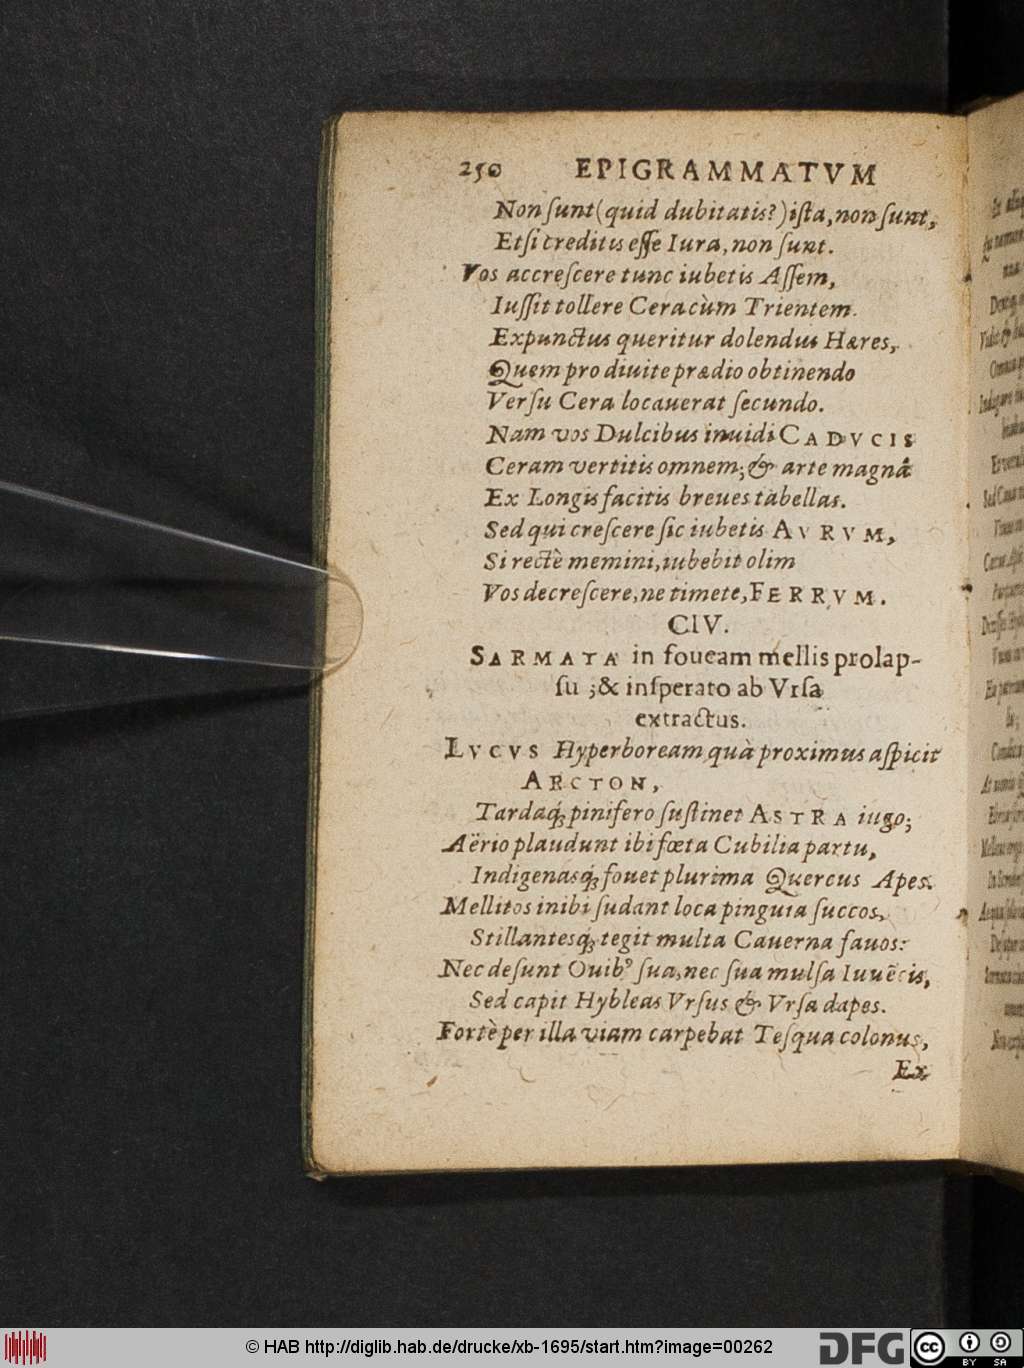 250 EPIGRAMMATVM
Non ſunt (quid dubitatis?) iſta, non ſunt,
Etſi creditis eſſe Iura, non ſunt.
Vos accreſcere tunc iubetis Aſſem,
Iuſſit tollere Cera cùm Trientem.
Expunctus queritur dolendus Hæres,
Quem pro diuite prædio obtinendo
Verſu Cera locauerat ſecundo.
Nam vos Dulcibus inuidi CADVCIS
Ceram vertitis omnem; & arte magnâ
Ex Longis facitis breues tabellas.
Sed qui creſcere ſic iubetis AVRVM,
Si rectè memini, iubebit olim
Vos decreſcere, ne timete, FERRVM.
CIV.
SARMATA in foueam mellis prolap-
ſu; & inſperato ab Vrſa
extractus.
LVCVS Hyperboream quà proximus aſpicit
ARCTON,
Tardaq́; pinifero ſuſtinet ASTRA iugo;
Aërio plaudunt ibi fœta Cubilia partu,
Indigenasq́; fouet plurima Quercus Apes.
Mellitos inibi ſudant loca pinguia ſuccos,
Stillantesq́; tegit multa Cauerna fauos:
Nec deſunt Ouibꝰ ſua, nec ſua mulſa Iuuẽcis,
Sed capit Hybleas Vrſus & Vrſa dapes.
Fortè per illa viam carpebat Teſqua colonus,
Ex
© HAB http://diglib.hab.de/drucke/xb-1695/start.htm?image=00262
DFG
cc BY SA